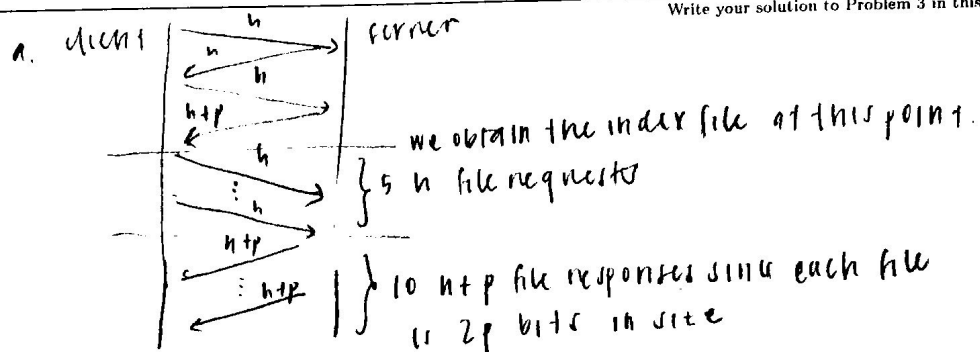 Write your solution to Problem 3 in this
a. client server
h
h
h
h+p
we obtain the index file at this point.
h
⋮ h
} 5 h file requests
h+p
⋮ h+p
} 10 h+p file responses since each file
is 2p bits in size